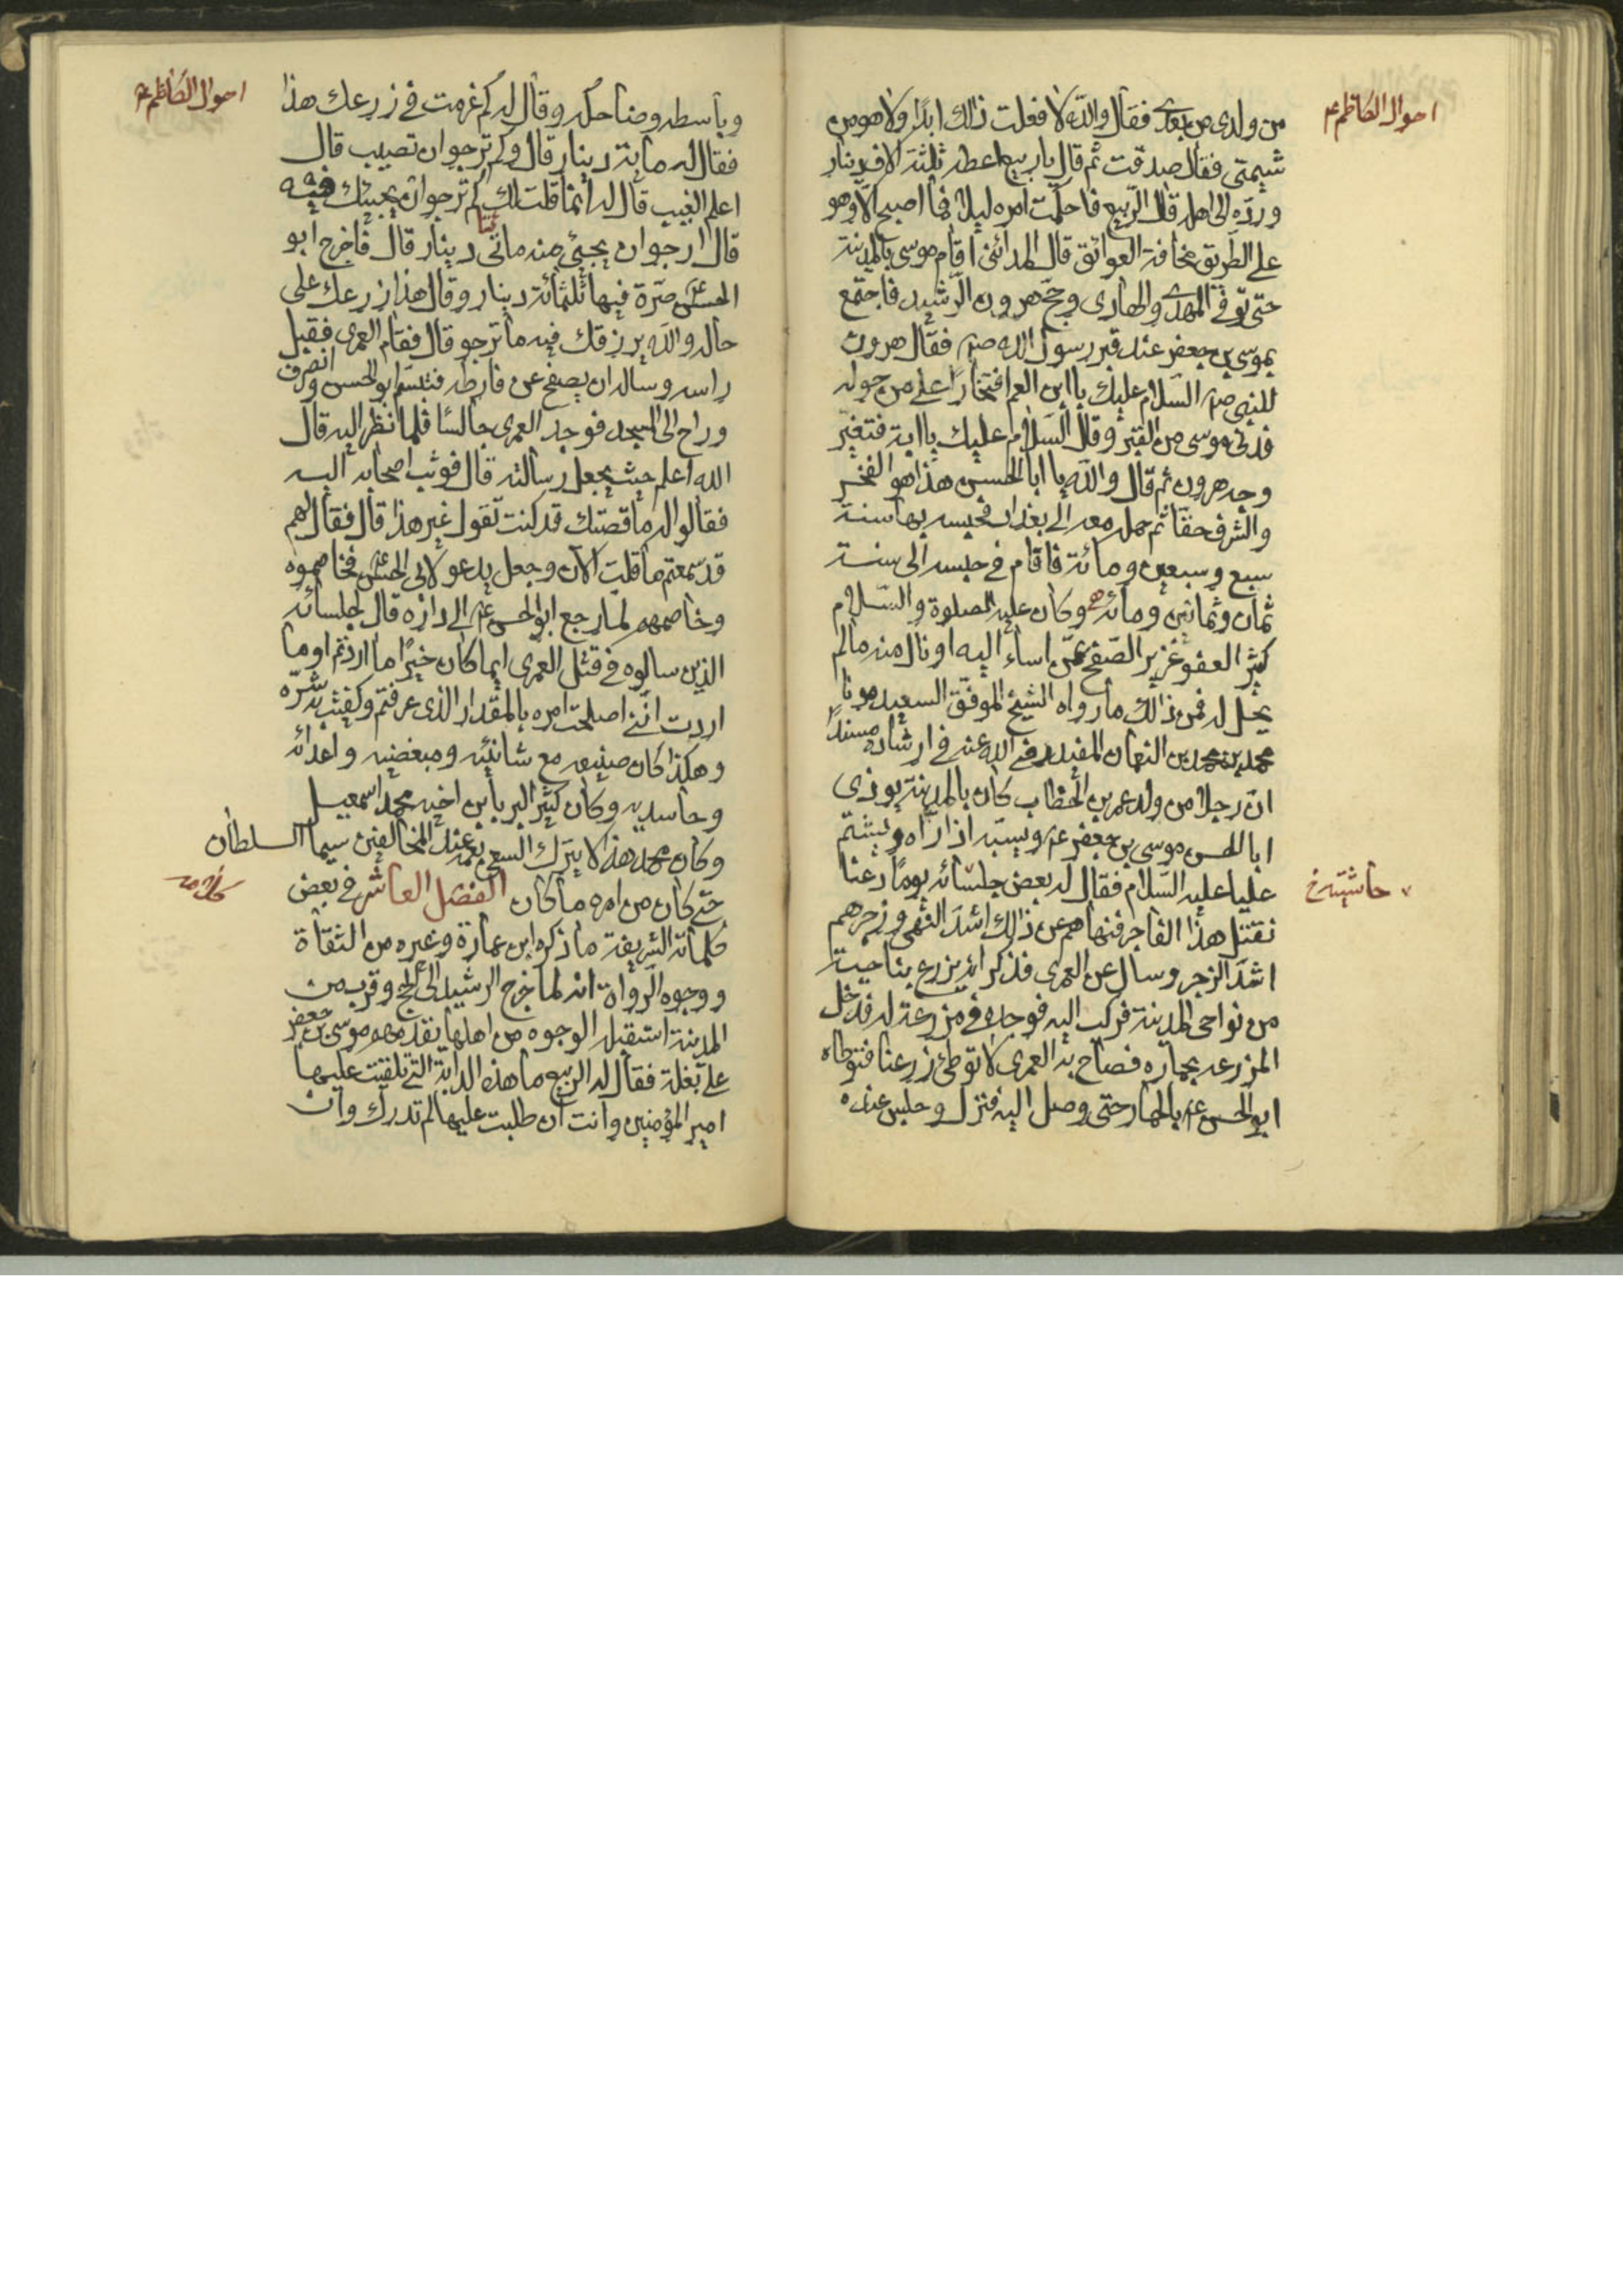 احوال الكاظم ع
من ولدى من بعدى فقال والله لا فعلت ذالك ابدًا ولا هو من
شيمتى فقال صدقت ثم قال يا ربيع اعطه ثلثة الاف دينار
وردّه الى اهله قال الربيع فاحكمت امره ليلا فما اصبح الّا وهو
على الطريق مخافة العوائق قال المدائنى اقام موسى بالمدينة
حتى توفى المهدى والهادى وحجّ هرون الرشيد فاجتمع
بموسى بن جعفر عند قبر رسول الله صم فقال هرون
للنبى صم السلام عليك يا ابن العم افتخارًا على من حوله
فدنى موسى من القبر وقال السلام عليك يا ابة فتغيّر
وجه هرون ثم قال والله يا ابا الحسن هذا هو الفخر
والشرف حقا ثم حمله معه الى بغداد فحبسه بها سنة
سبع وسبعين ومائة فاقام فى حبسه الى سنة
ثمان وثمانين ومائة وكان عليه الصلوة والسّلام
كثير العفو غزير الصّفح عمّن اساء اليه او نال منه مالم
يحل له فمن ذالك ما رواه الشيخ الموفّق السعيد مولانا
محمد بن محمد بن النعمان المفيد رضى الله عنه فى ارشاده مسندًا
انّ رجلا من ولد عمر بن الخطاب كان بالمدينة يوذى
ابا الحسن موسى بن جعفر ع ويسبّه اذا راه ويشتم
عليا عليه السّلام فقال له بعض جلسائه يومًا دعنا
حاشيته خ
نقتل هذا الفاجر فنهاهم عن ذالك اشدّ النهى وزجرهم
اشدّ الزجر وسال عن العمرى فذكر انه يزرع بناحية
من نواحى المدينة فركب اليه فوجده فى مزرعة له فدخل
المزرعه بحماره فصاح به العمرى لا توطئ زرعنا فتوطاه
ابو الحسن ع بالحمار حتى وصل اليه فنزل وجلس عنده
احوال الكاظم ع
وباسطه وضاحكه وقال له كم غرمت فى زرعك هذا
فقال له ماية دينار قال وكم ترجو ان تصيب قال
اعلم الغيب قال له انما قلت لك كم ترجو ان يجيئك فيه
قال ارجو ان يجيئ منه مائتى دينار قال فاخرج ابو
الحسن ع صرّة فيها ثلثمائة دينار وقال هذا زرعك على
حاله والله يرزقك فيه ما ترجو قال فقام العمرى فقبل
راسه وساله ان يصفح عن فارطه فتبسّم ابو الحسن وانصرف
وراح الى المسجد فوجد العمرى جالسًا فلما نظر اليه قال
الله اعلم حيث يجعل رسالته قال فوثب اصحابه اليه
فقالوا له ما قصّتك قد كنت تقول غير هذا قال فقال لهم
قد سمعتم ما قلت الآن وجعل يدعو لابى الحسن ع فخاصموه
وخاصمهم لما رجع ابو الحسن ع الى داره قال لجلسائه
الذين سالوه فى قتل العمرى ايما كان خيرًا ما اردتم او ما
اردت انّنى اصلحت امره بالمقدار الذى عرفتم وكفيت به شرّه
وهكذا كان صنيعه مع شانئيه ومبغضيه واعدائه
وحاسديه وكان كثير البر بابن اخيه محمد اسمعيل
وكان محمد هذا لا يترك السعى بعمه عند المخالفين سيما السلطان
حتى كان من امره ما كان الفصل العاشر فى بعض
كلماته الشريفة ما ذكره ابن عمارة وغيره من الثقاة
ووجوه الرواة انه لما خرج الرشيد الى الحج وقرب من
المدينة استقبله الوجوه من اهلها يقدمهم موسى بن جعفر
على بغلة فقال له الربيع ما هذه الدابة التى تلقيت عليها
امير المؤمنين وانت ان طلبت عليها لم تدرك وان